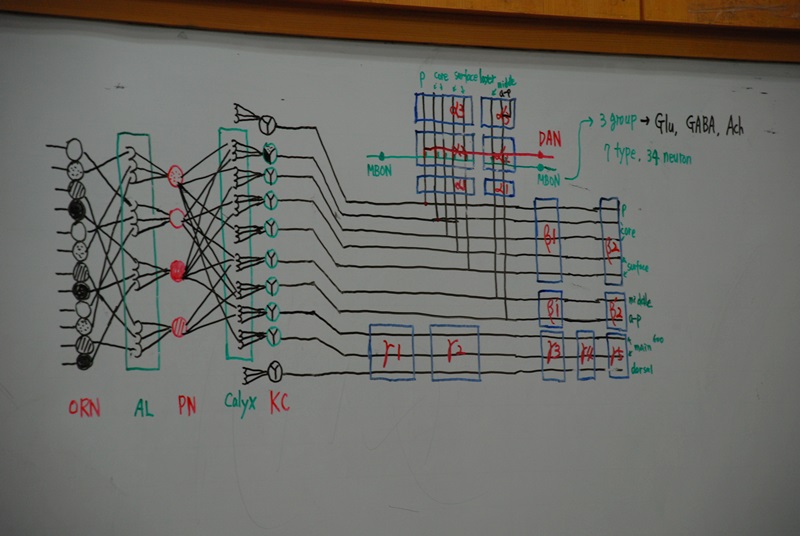 P core surface layer middle
a-p
α3
DAN
MBON
MBON
3 group → Glu, GABA, Ach
7 type, 34 neuron
P
core
surface
middle
a-p
main
dorsal
β1
β2
β1
β2
γ1 γ2 γ3 γ4 γ5
ORN AL PN Calyx KC